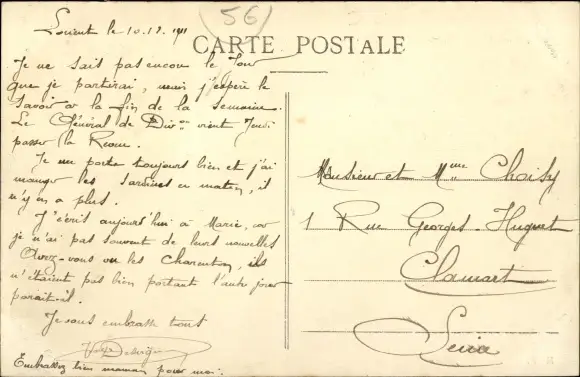 56
Lorient le 10.12.1911
CARTE POSTALE
Je ne sais pas encore le Jour
que je partirai, mais j'espère le
savoir a la fin de la semaine.
Le Général de Divon vient Jeudi
passer la Revue.
Je me porte toujours bien et j'ai
mangé les sardines ce matin, il
n'y en a plus.
J'écris aujourd'hui à Marie, car
je n'ai pas souvent de leurs nouvelles
Avez-vous vu les Charenton, ils
n'étaient pas bien portant l'autre jour
parait-il.
Je vous embrasse tous
Embrassez bien maman pour moi.
Monsieur et Mme Choisy
1 Rue Georges-Huguet
Clamart
Seine